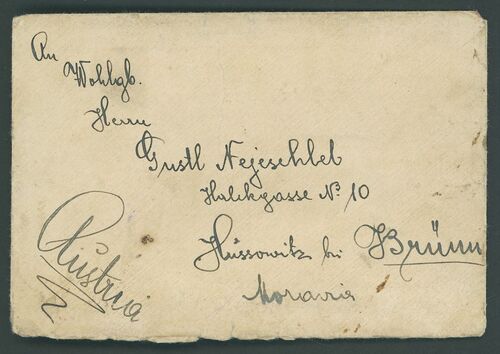 An
Wohlgb.
Herrn
Gustl Nejeschleb
Halekgasse № 10
Hussowitz bei Brünn
Moravia
Austria